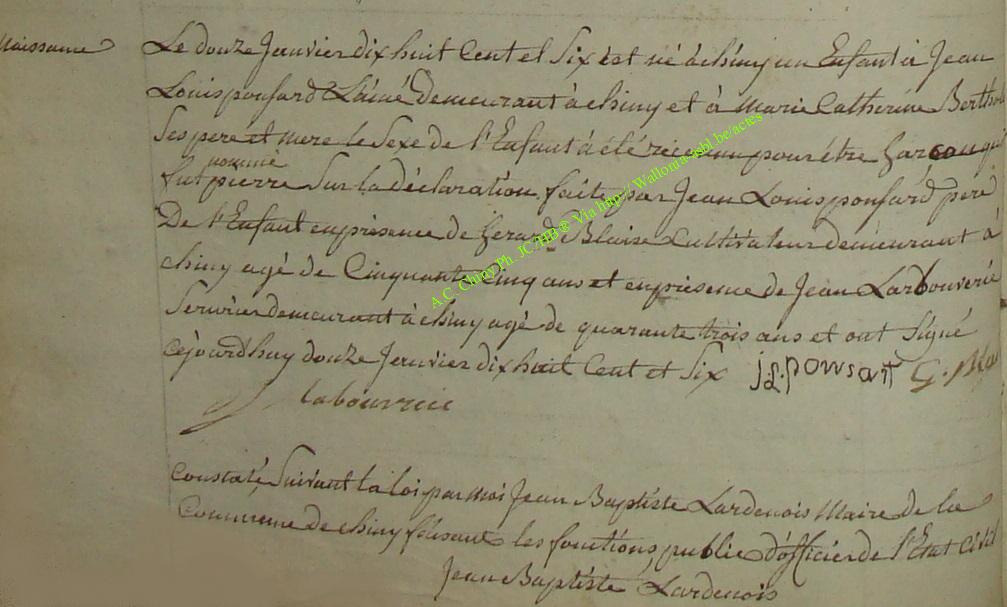 Naissance
Le douze Janvier dix huit Cent et Six est né à chiny un Enfant à Jean
Louis ponsard L'ainé Demeurant à chiny et à Marie Catherine Berth
Ses pere et mere le Sexe de l'Enfant à été reconnu pour être Garcon qui
nommé
fut pierre Sur la déclaration faite par Jean Louis ponsard pere
De l'Enfant en présence de Gerard Blaise Cultivateur demeurant a
chiny agé de Cinquante Cinq ans et en présence de Jean Larbouverie
demeurant à chiny agé de quarante trois ans et ont Signé
cejourd'huy douze Janvier dix huit Cent et Six j L ponsart G. Bla
labouverie
Constaté Suivant la loi par moi Jean Baptiste Lardenois Maire de la
Commune de chiny faisant les fonctions public d'officier de l'Etat Civil
Jean Baptiste Lardenois
A.C. Chiny Ph. JC/HB ® Via http://Wallonia-asbl.be/actes